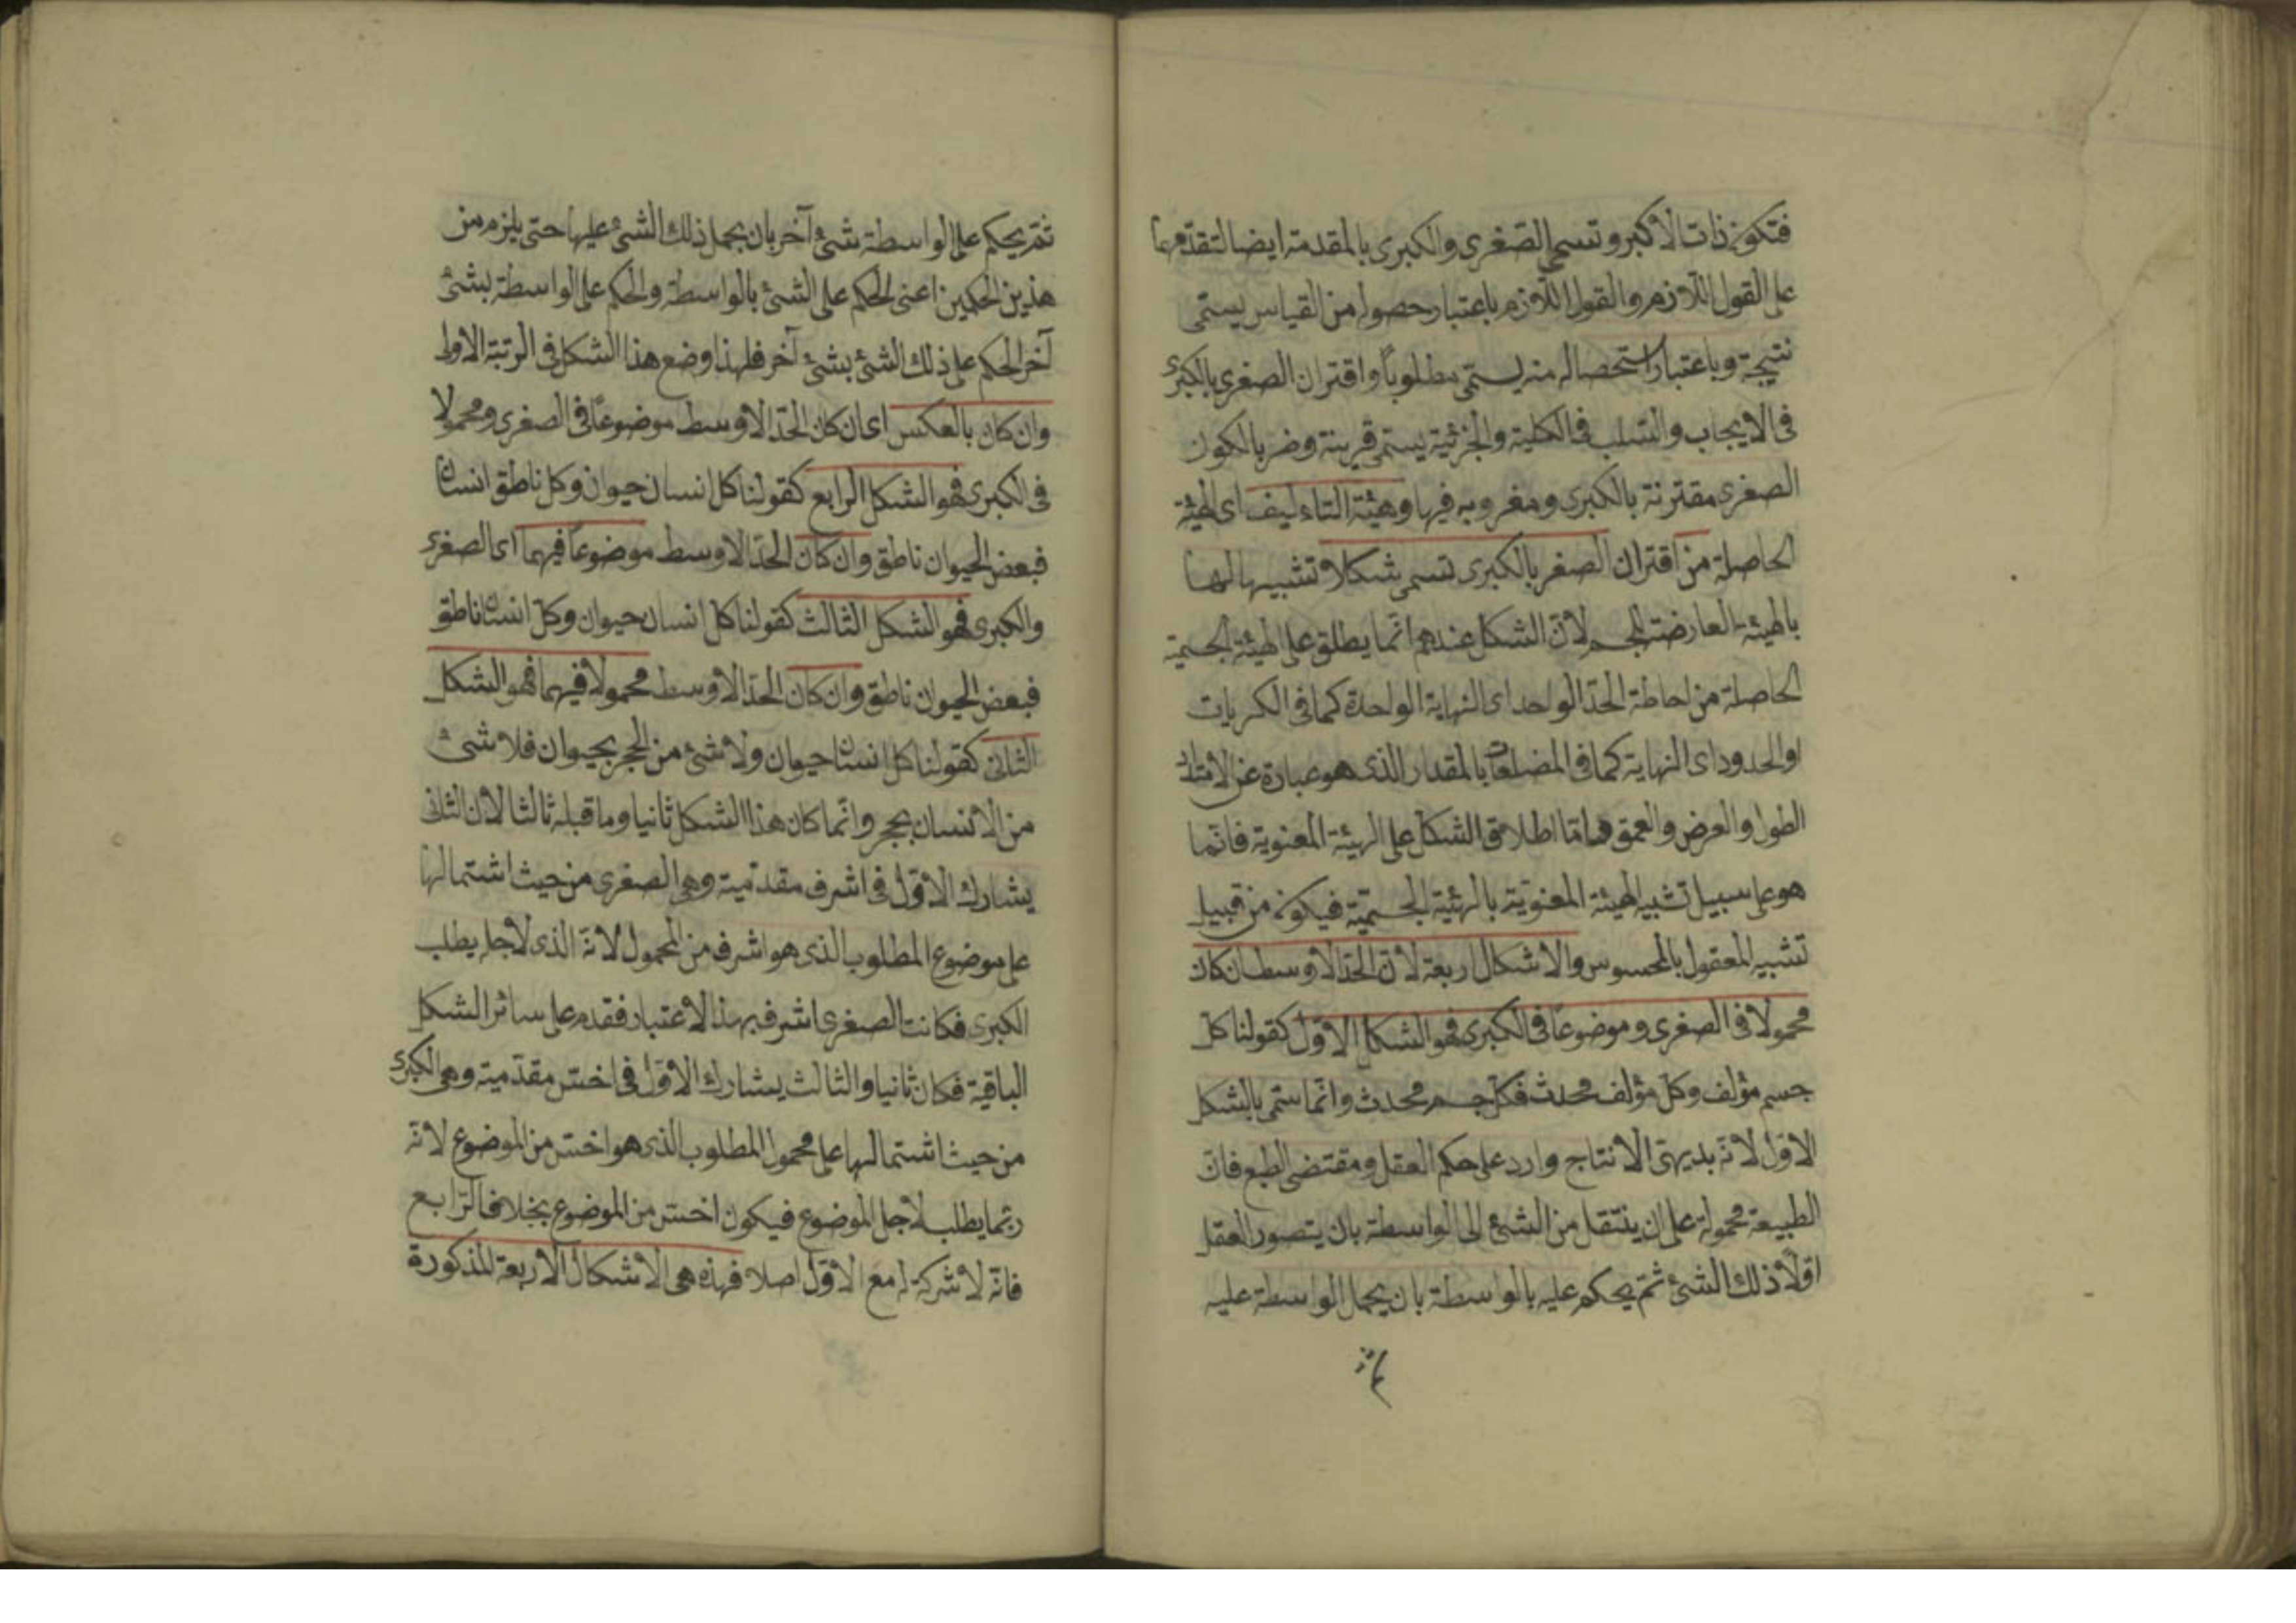 فتكون ذات الاكبر وتسمى الصغرى والكبرى بالمقدمة ايضا لتقدمها
على القول اللازم والقول اللازم باعتبار حصوله من القياس يسمّى
نتيجة وباعتبار استحصاله منه يسمّى مطلوباً واقتران الصغرى بالكبرى
فى الايجاب والسّلب فى الكلية والجزئية يسمّى قرينة وضربا لكون
الصغرى مقترنة بالكبرى ومضروبه فيها وهيئة التاءليف اى الهيئة
الحاصلة من اقتران الصغر بالكبرى تسمى شكلا تشبيها لها
بالهيئة العارضة للجسم لانّ الشكل عندهم انّما يطلق على الهيئة الجسميّة
الحاصلة من احاطة الحدّ الواحد اى النهاية الواحدة كما فى الكريات
او الحدود اى النهاية كما فى المضلعات بالمقدار الذى هو عبارة عن الامتداد
الطول والعرض والعمق وامّا اطلاق الشكل على الهيئة المعنوية فانّما
هو على سبيل تشبيه الهيئة المعنويّة بالهيئة الجسميّة فيكون من قبيل
تشبيه المعقول بالمحسوس والاشكال اربعة لانّ الحدّ الاوسط ان كان
محمولا فى الصغرى وموضوعاً فى الكبرى فهو الشكل الاوّل كقولنا كل
جسم مؤلف وكلّ مؤلف محدث فكلّ جسم محدث وانّما سمّى بالشكل
الاوّل لانّه بديهىّ الانتاج وارد على حكم العقل ومقتضى الطبع فانّ
الطبيعة محمولة على ان ينتقل من الشئ الى الواسطة بان يتصور العقل
اوّلاً ذلك الشئ ثمّ يحكم عليه بالواسطة بان يحمل الواسطة عليه
ثم
ثمّ يحكم على الواسطة شئ آخر بان يحمل ذلك الشئ عليها حتى يلزم من
هذين الحكمين اعنى الحكم على الشئ بالواسطة والحكم على الواسطة بشئ
آخر الحكم على ذلك الشئ بشئ آخر فلهذا وضع هذا الشكل فى الرتبة الاولى
وان كان بالعكس اى ان كان الحدّ الاوسط موضوعاً فى الصغرى ومحمولا
فى الكبرى فهو الشكل الرابع كقولنا كل انسان حيوان وكل ناطق انسان
فبعض الحيوان ناطق وان كان الحدّ الاوسط موضوعاً فيهما اى الصغرى
والكبرى فهو الشكل الثالث كقولنا كل انسان حيوان وكلّ انسان ناطق
فبعض الحيوان ناطق وان كان الحدّ الاوسط محمولا فيهما فهو الشكل
الثانى كقولنا كل انسان حيوان ولا شئ من الحجر بحيوان فلا شئ
من الانسان بحجر وانّما كان هذا الشكل ثانيا وما قبله ثالثا لان الثانى
يشارك الاوّل فى اشرف مقدّميته وهى الصغرى من حيث اشتمالها
على موضوع المطلوب الذى هو اشرف من المحمول لانّه الذى لاجله يطلب
الكبرى فكانت الصغرى اشرف بهذا الاعتبار فقدم على سائر الشكل
الباقية فكان ثانيا والثالث يشارك الاوّل فى اخسّ مقدّميته وهى الكبرى
من حيث اشتمالها على محمول المطلوب الذى هو اخسّ من الموضوع لانّه
ربّما يطلب لاجل الموضوع فيكون اخسّ من الموضوع بخلاف الرّابع
فانّه لا شركة له مع الاوّل اصلا فهذه هى الاشكال الاربعة المذكورة